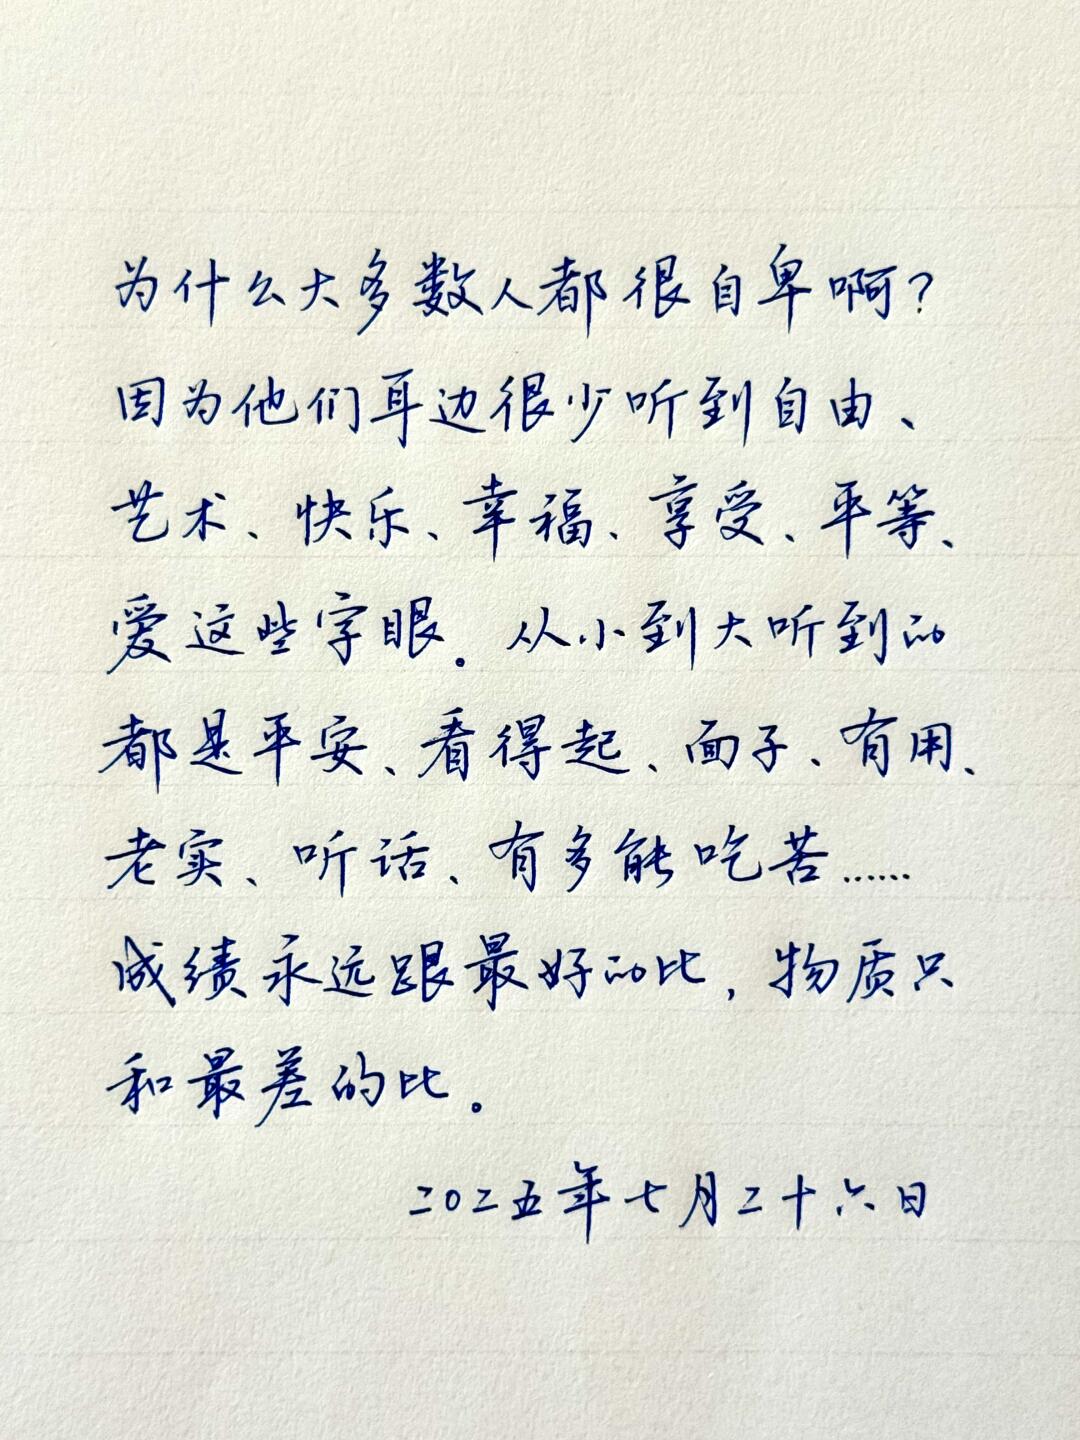 为什么大多数人都很自卑啊？
因为他们耳边很少听到自由、
艺术、快乐、幸福、享受、平等、
爱这些字眼。从小到大听到的
都是平安、看得起、面子、有用、
老实、听话、有多能吃苦……
成绩永远跟最好的比，物质只
和最差的比。
二〇二五年七月二十六日